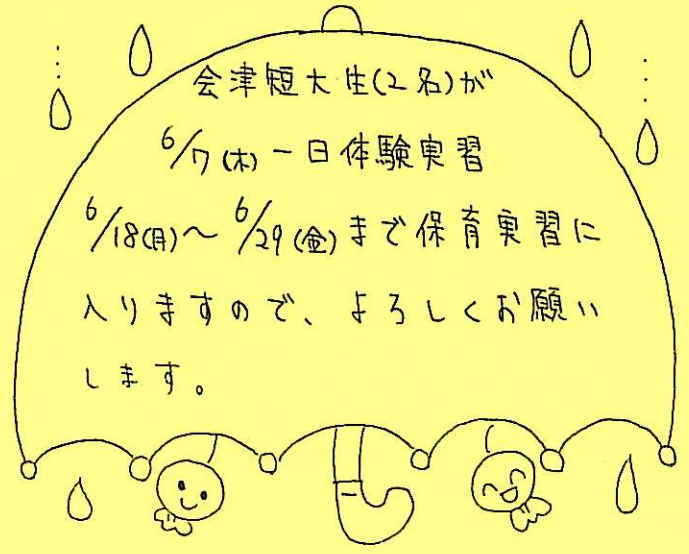 会津短大生(2名)が
6/7(木)一日体験実習
6/18(月)～6/29(金)まで保育実習に
入りますので、よろしくお願い
します。